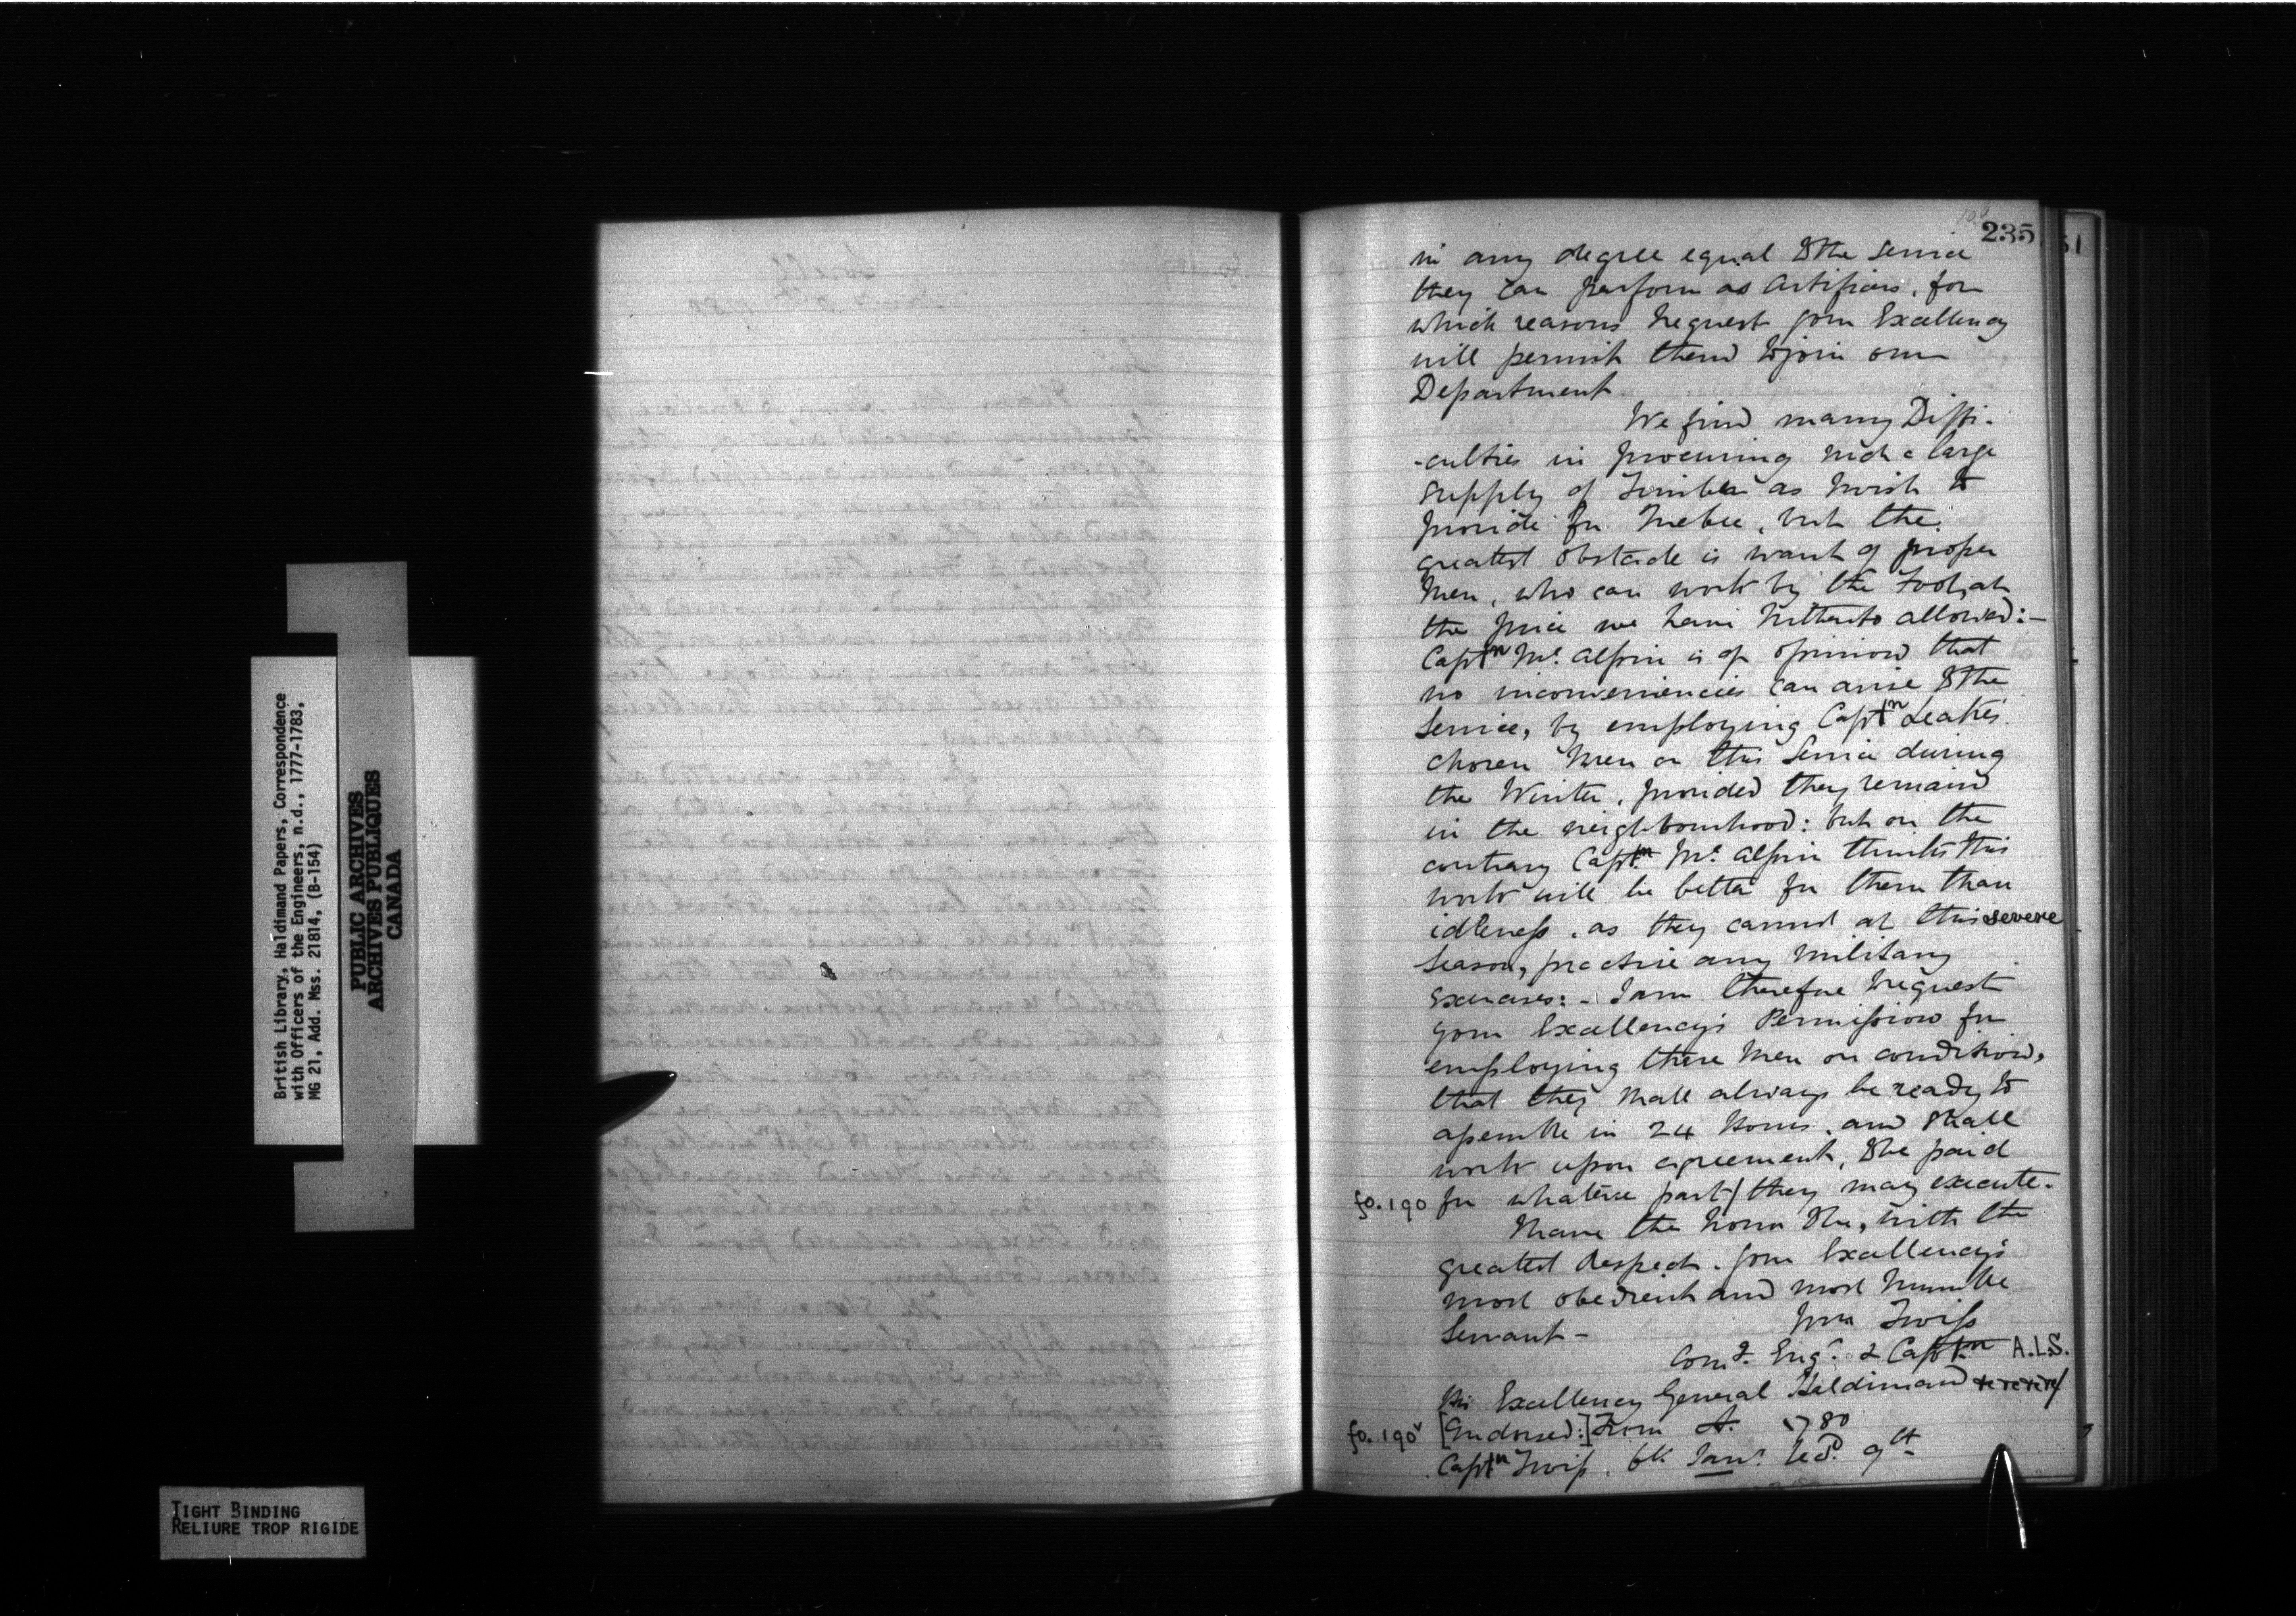 British Library, Haldimand Papers, Correspondence
with Officers of the Engineers, n.d., 1777-1783,
MG 21, Add. Mss. 21814, (B-154)
PUBLIC ARCHIVES
ARCHIVES PUBLIQUES
CANADA
TIGHT BINDING
RELIURE TROP RIGIDE
235
51
in any degree equal to the service
they can perform as Artificers, for
which reasons I request your Excellency
will permit them to join our
Department.
We find many Diffi-
-culties in procuring such a large
supply of Timber as I wish to
provide for Quebec, but the
greatest obstacle is want of proper
Men, who can work by the Foot, at
the price we have hitherto allowed:—
Captn Mc. Alpin is of opinion that
no inconveniencies can arise to the
Service, by employing Captn Leake's
chosen Men on this Service during
the Winter, provided they remain
in the neighbourhood: but on the
contrary Captn Mc. Alpin thinks this
work will be better for them than
idleness, as they cannot at this severe
Season, practise any Military
Exercises:- I am therefore to request
your Excellency's Permission for
employing these Men on condition,
that they shall always be ready to
assemble in 24 Hours, and shall
work upon agreement, to be paid
fo. 190 for whatever part/ they may execute.
I have the honor to be, with the
greatest Respect. Your Excellency's
most obedient and most humble
Servant -
Wm Twiss
Comg. Engr. & Captn A.L.S.
His Excellency General Haldimand
fo. 190v [Endorsed:] From A. 1780
Captn Twiss, 6th Jany. recd. 9th